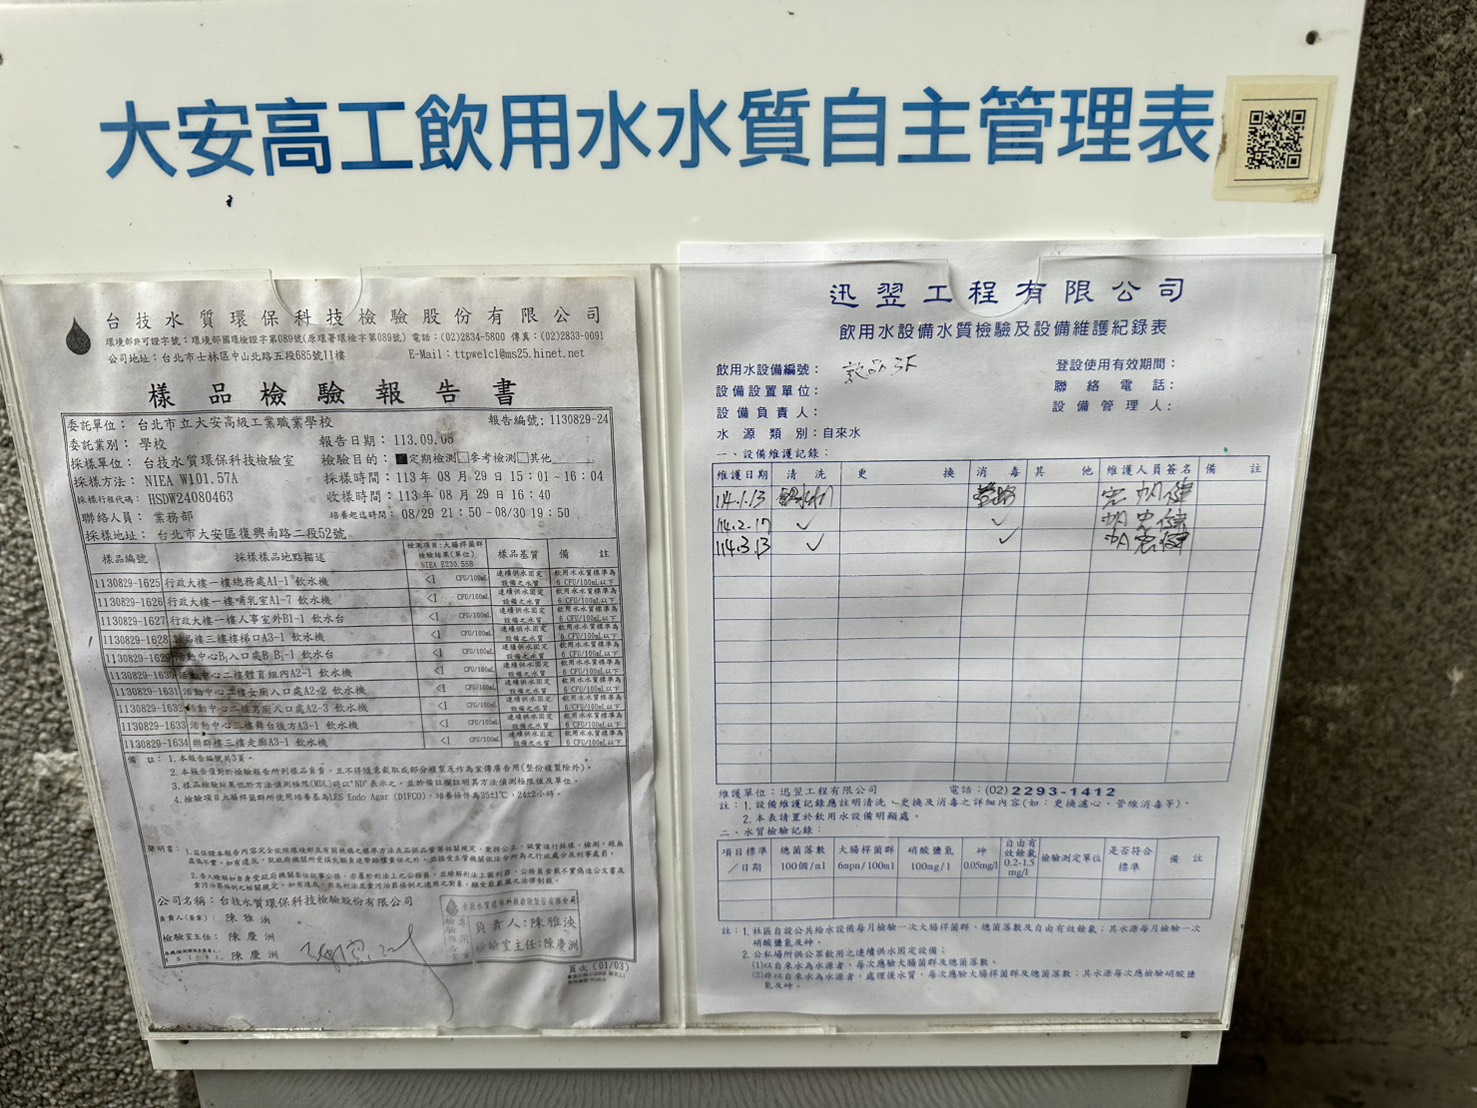 大安高工飲用水水質自主管理表
台技水質環保科技檢驗股份有限公司
環境部許可證字號：環境部國環檢證字第089號(原環署環檢字第089號) 電話：(02)2834-5800 傳真：(02)2833-0091
公司地址：台北市士林區中山北路五段685號11樓 E-Mail：ttpwelcl@ms25.hinet.net
樣品檢驗報告書
委託單位：台北市立大安高級工業職業學校 報告編號：1130829-24
委託業別：學校 報告日期：113.09.05
採樣單位：台技水質環保科技檢驗室 檢驗目的：■定期檢測□參考檢測□其他
採樣方法：NIEA W101.57A 採樣時間：113年08月29日15:01~16:04
採樣行程代碼：HSDW24080463 收樣時間：113年08月29日16:40
聯絡人員：業務部 培養起迄時間：08/29 21:50~08/30 19:50
採樣地址：台北市大安區復興南路二段52號
樣品編號 採樣樣品地點描述 檢測項目:大腸桿菌群 檢驗結果(單位) NIEA E230.55B 樣品基質 備註
1130829-1625 行政大樓一樓總務處A1-1 飲水機 <1 CFU/100mL 連續供水固定設備之水質 飲用水水質標準為6 CFU/100mL以下
1130829-1626 行政大樓一樓哺乳室A1-7 飲水機 <1 CFU/100mL 連續供水固定設備之水質 飲用水水質標準為6 CFU/100mL以下
1130829-1627 行政大樓一樓人事室外B1-1 飲水台 <1 CFU/100mL 連續供水固定設備之水質 飲用水水質標準為6 CFU/100mL以下
1130829-1628 品樓三樓樓梯口A3-1 飲水機 <1 CFU/100mL 連續供水固定設備之水質 飲用水水質標準為6 CFU/100mL以下
1130829-1629 活動中心B1入口處B B1-1 飲水台 <1 CFU/100mL 連續供水固定設備之水質 飲用水水質標準為6 CFU/100mL以下
1130829-1630 活動中心二樓體育組內A2-1 飲水機 <1 CFU/100mL 連續供水固定設備之水質 飲用水水質標準為6 CFU/100mL以下
1130829-1631 活動中心二樓女廁入口處A2-2 飲水機 <1 CFU/100mL 連續供水固定設備之水質 飲用水水質標準為6 CFU/100mL以下
1130829-1632 活動中心二樓男廁入口處A2-3 飲水機 <1 CFU/100mL 連續供水固定設備之水質 飲用水水質標準為6 CFU/100mL以下
1130829-1633 活動中心三樓舞台後方A3-1 飲水機 <1 CFU/100mL 連續供水固定設備之水質 飲用水水質標準為6 CFU/100mL以下
1130829-1634 樂群樓三樓走廊A3-1 飲水機 <1 CFU/100mL 連續供水固定設備之水質 飲用水水質標準為6 CFU/100mL以下
備註：1.本報告編號共3頁。
2.本報告僅對於檢驗報告所列樣品負責，且不得隨意截取或部分複製及作為宣傳廣告用(整份複製除外)。
3.樣品檢驗結果低於方法偵測極限(MDL)時以"ND"表示之，並於備註欄註明其方法偵測極限值及單位。
4.檢驗項目大腸桿菌群所使用培養基為LES Endo Agar (DIFCO)，培養條件為35±1℃、24±2小時。
聲明書：
公司名稱：台技水質環保科技檢驗股份有限公司
負責人(簽章) 陳雅
檢驗室主任：陳慶洲
陳慶洲
負責人:陳雅
檢驗室主任:陳慶洲
頁次(01/03)
迅翌工程有限公司
飲用水設備水質檢驗及設備維護紀錄表
飲用水設備編號：敦品3F 登設使用有效期間：
設備設置單位： 聯絡電話：
設備負責人： 設備管理人：
水源類別：自來水
一、設備維護記錄：
維護日期 清洗 更換 消毒 其他 維護人員簽名 備註
114.1.13
114.2.17 ✓ ✓
114.3.13 ✓ ✓
維護單位：迅翌工程有限公司 電話：(02)2293-1412
註：1.設備維護記錄應註明清洗、更換及消毒之詳細內容(如：更換濾心、管線消毒等)。
2.本表請置於飲用水設備明顯處。
二、水質檢驗記錄：
項目標準／日期 總菌落數 100個/ml 大腸桿菌群 6mpn/100ml 硝酸鹽氮 100mg/l 砷 0.05mg/l 自由有效餘氯 0.2-1.5 mg/l 檢驗測定單位 是否符合標準 備註
註：1.社區自設公共給水設備每月檢驗一次大腸桿菌群、總菌落數及自由有效餘氯；其水源每月檢驗一次
硝酸鹽氮及砷。
2.公私場所供公眾飲用之連續供水固定設備：
(1)以自來水為水源者，每次應驗大腸菌群及總菌落數。
(2)非以自來水為水源者，處理後水質，每次應驗大腸桿菌群及總菌落數；其水源每次應檢驗硝酸鹽
氮及砷。